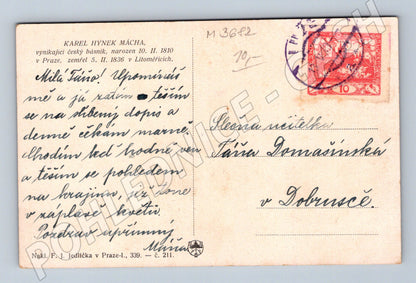 KAREL HYNEK MÁCHA,
vynikající český básník, narozen 10. II. 1810
v Praze, zemřel 5. II. 1836 v Litoměřicích.
M 3682
10,-
Milá Táňo! Upomínáš
mě a já zatím těším
se na slíbený dopis a
denně čekám marně.
Chodím teď hodně ven
a těším se pohledem
na krajinu, jež tone
v záplavě květů.
Pozdrav upřímný
Máňa
Slečna učitelka
Táňa Domašínská
v Dobrusce
10
Nakl. F. J. Jedlička v Praze-I., 339. — č. 211.
POHLEDNICE